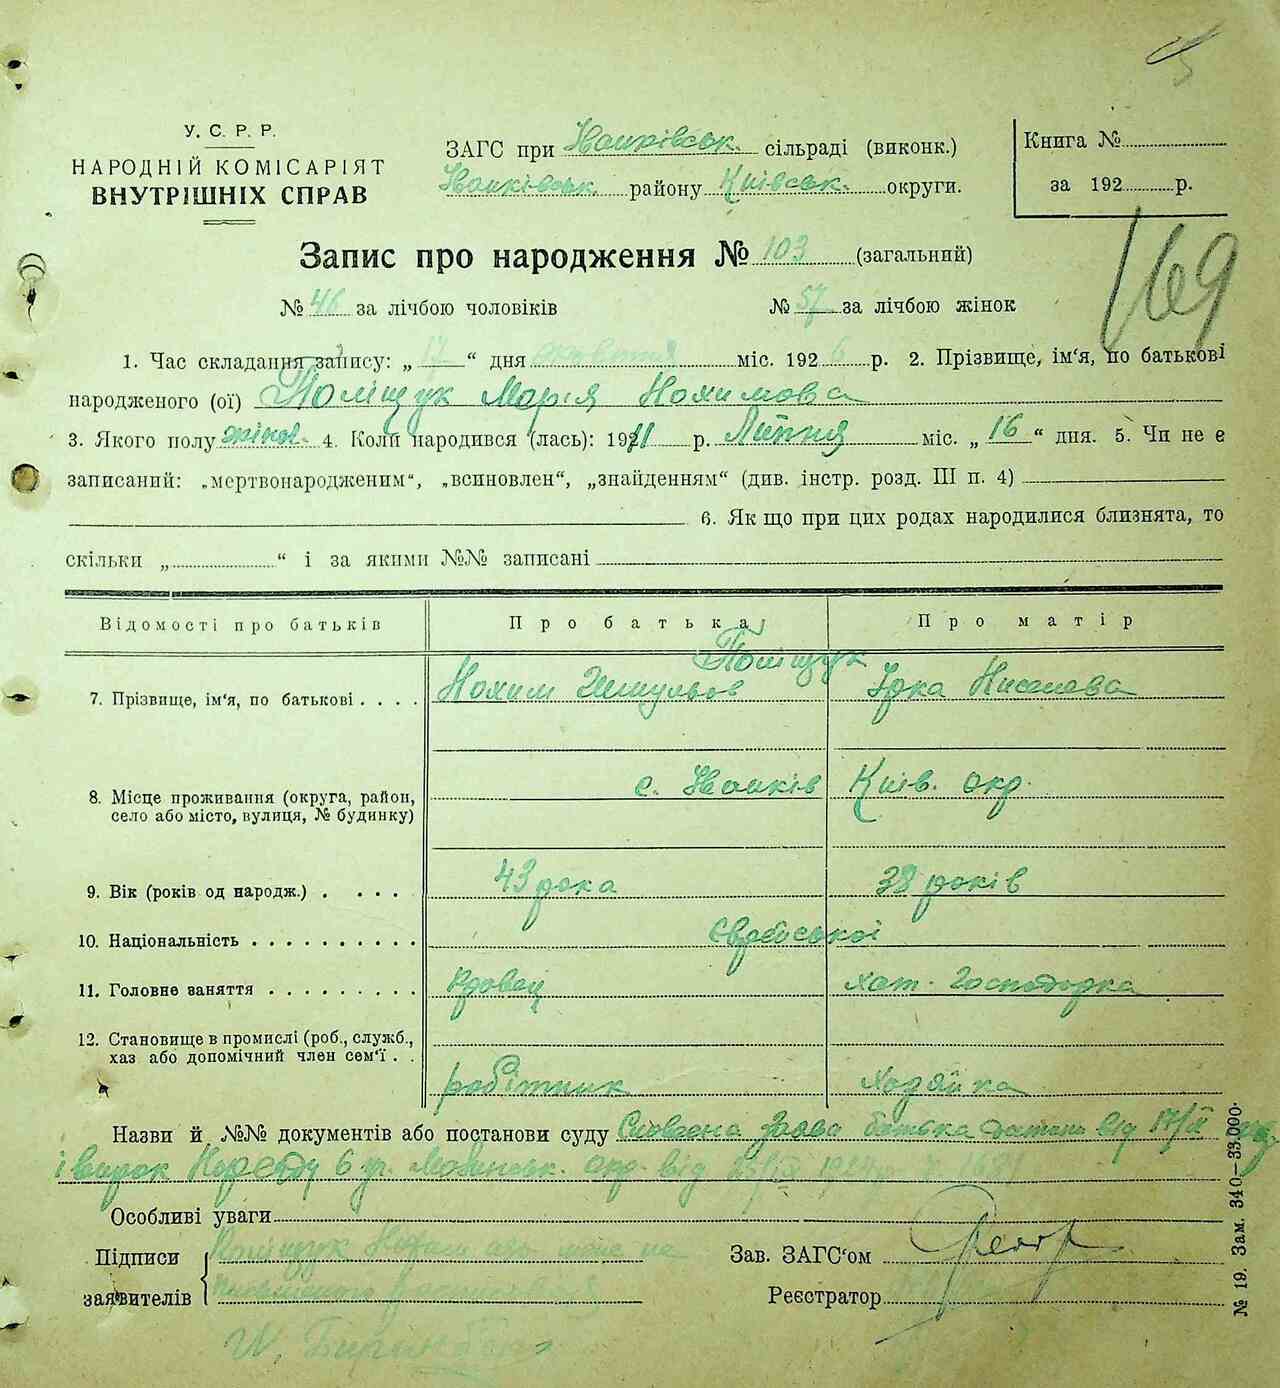 У. С. Р. Р.
НАРОДНІЙ КОМІСАРІЯТ
ВНУТРІШНІХ СПРАВ
ЗАГС при Іванківськ. сільраді (виконк.)
Іванківськ. району Київськ. округи.
Книга №
за 192 р.
169
Запис про народження № 103 (загальний)
№ 46 за лічбою чоловіків № 57 за лічбою жінок
1. Час складання запису: „ 17 “ дня міс. 1926 р. 2. Прізвище, ім‘я, по батькові
народженого (ої) Поліщук Марія Нохимова
3. Якого полу жіноч. 4. Коли народився (лась): 1911 р. Липня міс. „ 16 “ дня. 5. Чи не є
записаний: „мертвонародженим“, „всиновлен“, „знайденням“ (див. інстр. розд. III п. 4)
6. Як що при цих родах народилися близнята, то
скільки „ “ і за якими №№ записані
Відомості про батьків Про батька Про матір
Поліщук
7. Прізвище, ім‘я, по батькові . . . . Нохим Шмульов Ніселева
8. Місце проживання (округа, район, с. Іванків Київ. окр.
село або місто, вулиця, № будинку)
9. Вік (років од народж.) . . . . 43 рока 38 років
10. Національність . . . . . . . . . . Єврейської
11. Головне заняття . . . . . . . . . хат. господарка
12. Становище в промислі (роб., служб.,
хаз або допомічний член сем‘ї . .
робітник хазяйка
Назви й №№ документів або постанови суду Словесна заява батька від 17/
і 6 уч. окр. від
Особливі уваги
Підписи Поліщук
заявителів
Зав. ЗАГС‘ом
Реєстратор
№ 19. Зам. 340—33.000.